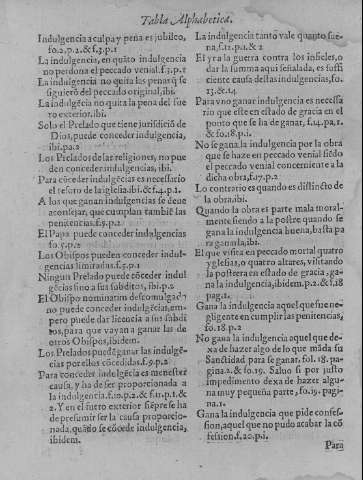 Tabla Alphabetica.
Indulgencia a culpa y pena es jubileo,
fo.2.p.2.& f.3.p.1
La indulgencia, en quãto indulgencia
no perdona el peccado venial.f.3.p.1
La indulgencia no quita las penas q̃ se
siguierõ del peccado original, ibi.
La indulgẽcia no quita la pena del fue
ro exterior, ibi.
Solo el Prelado que tiene jurisdiciõ de
Dios, puede conceder indulgencia,
ibi.pa.2
Los Prelados de las religiones, no pue
den conceder indulgencias, ibi.
Para cõceder indulgẽcias es necessario
el tesoro de la iglesia.ibi.& f.4.p.1.
A los que ganan indulgencias se deue
aconsejar, que cumplan tambiẽ las
penitencias.f.9.p.2
El Papa puede conceder indulgencias
fo.5.p.2
Los Obispos pueden conceder indul-
gencias limitadas.f.5.p.2
Ningun Prelado puede cõceder indul
gẽcias sino a sus subditos, ibi.p.2
El Obispo nominatim descomulgado
no puede conceder indulgencias, em-
pero puede dar licencia a sus subdi
tos, para que vayan a ganar las de
otros Obispos, ibidem.
Los Prelados puedẽ ganar las indulgẽ-
cias por ellos cõcedidas.f.9.p.2
Para conceder indulgẽcia es menester
causa, y ha de ser proporcionada a
la indulgencia.f.10.p.2.& f.11.p.1.&
2.Y en el futro exterior siẽpre se ha
de presumir ser la causa proporcio-
nada, quãdo se cõcede indulgencia,
ibidem.
La indulgencia tanto vale quanto sue-
na, f.12.p.1.& 2
El yr a la guerra contra los infieles, o
dar la summa aqui señalada, es suffi
ciente causa destas indulgencias, fo.
13.&.14
Para vno ganar indulgencia es necessa
rio que este en estado de gracia en el
punto que se ha de ganar, f.14.pa.1.
& fo.18.p.1.
No se gana la indulgencia por la obra
que se haze en peccado venial siẽdo
el peccado venial concerniente a la
dicha obra, f.17.p.2
Lo contrario es quando es distincto de
la obra.ibi.
Quando la obra es parte mala moral-
mente siendo a la postre quando se
gana la indulgencia buena, basta pa
ra ganarla, ibi.
El que visita en peccado mortal quatro
yglesias, o quatro altares, visitando
la postrera en estado de gracia, ga-
na la indulgencia, ibidem.p.2.& f.18
pag.1.
Gana la indulgencia aquel que fue ne-
gligente en cumplir las penitencias,
fo.18.p.2
No gana la indulgencia aquel que de-
xa de hazer algo de lo que mãda su
Sanctidad para se ganar.fol.18.pa-
gina.2.& fo.19. Saluo si por justo
impedimento dexa de hazer algu-
na muy pequeña parte, fo.19.pagi-
na.1.
Gana la indulgencia que pide confes-
sion, aquel que no pudo acabar la cõ
fession.f.20.p.1.
Para